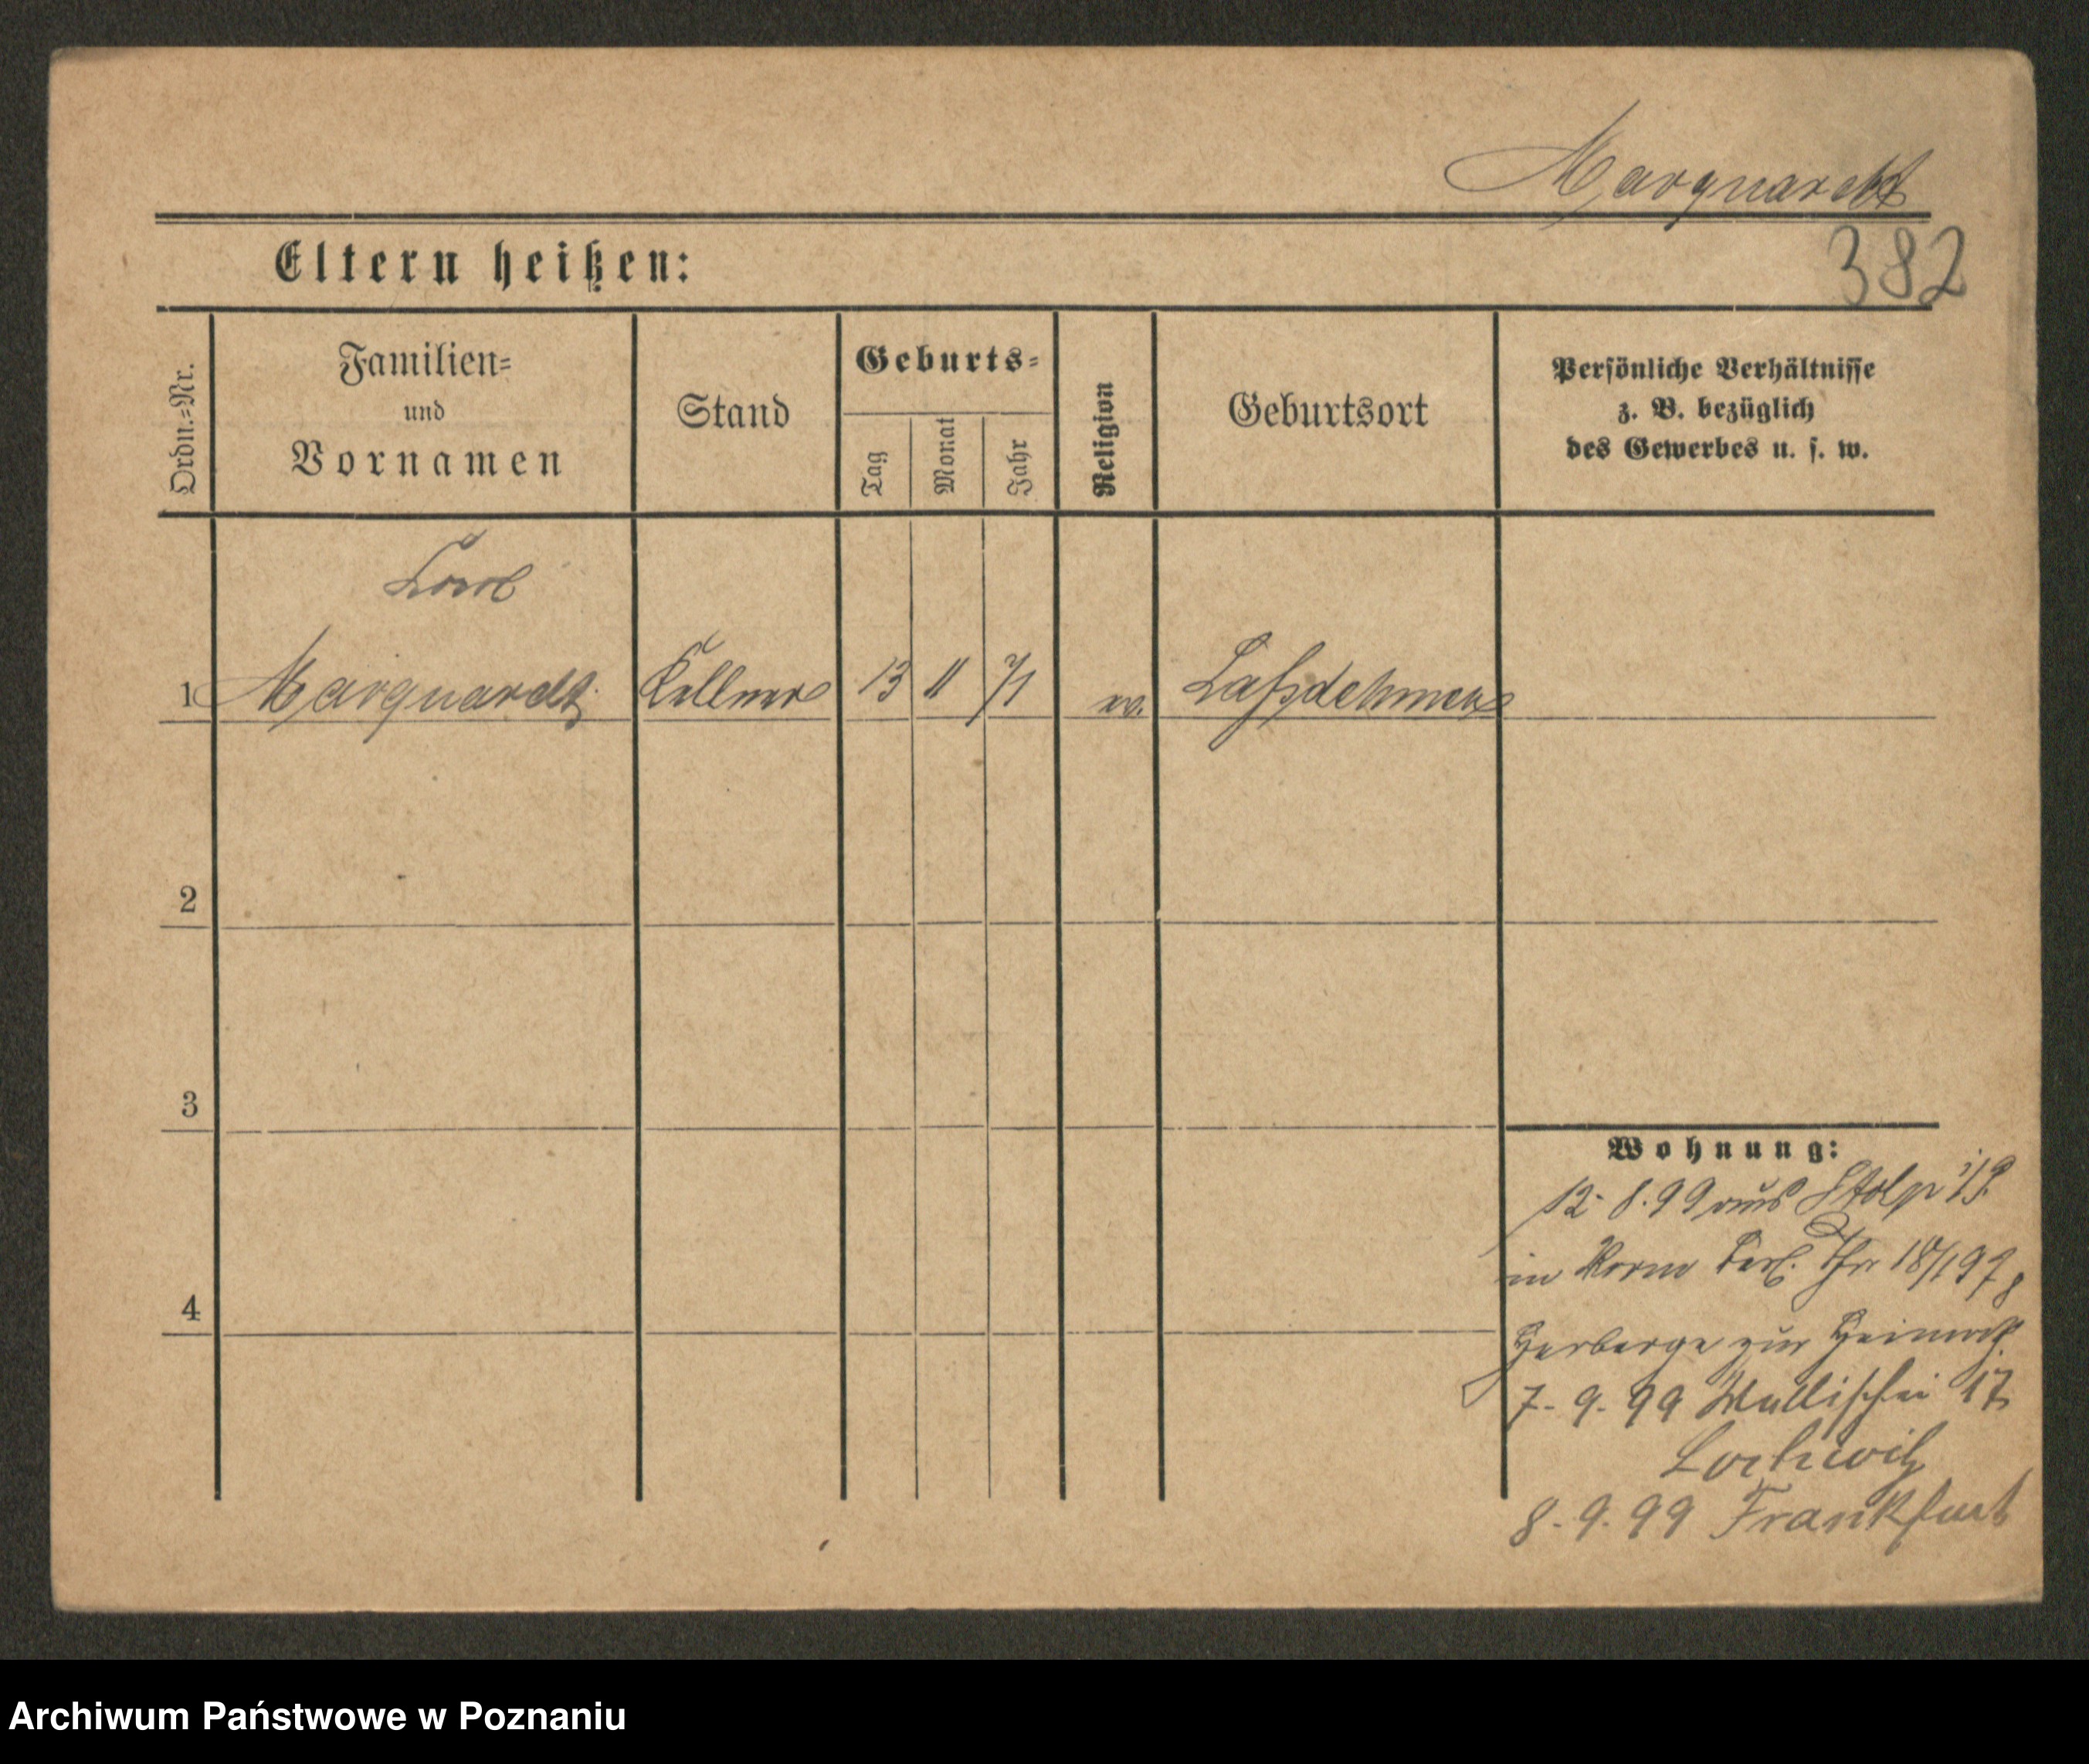 Marquardt
382
Eltern heißen:
Ordn.=Nr.
Familien=
und
Vornamen
Stand
Geburts=
Tag
Monat
Jahr
Religion
Geburtsort
Persönliche Verhältnisse
z. B. bezüglich
des Gewerbes u. s. w.
Karl
1 Marquardt Kellner 13 11 71 ev. Laßdehmen
2
3
4
Wohnung:
12-8.99 aus Stolp i/P.
in
Herberge zur Heimath
7-9.99 Wallischei 17
8-9.99 Frankfurt
Archiwum Państwowe w Poznaniu